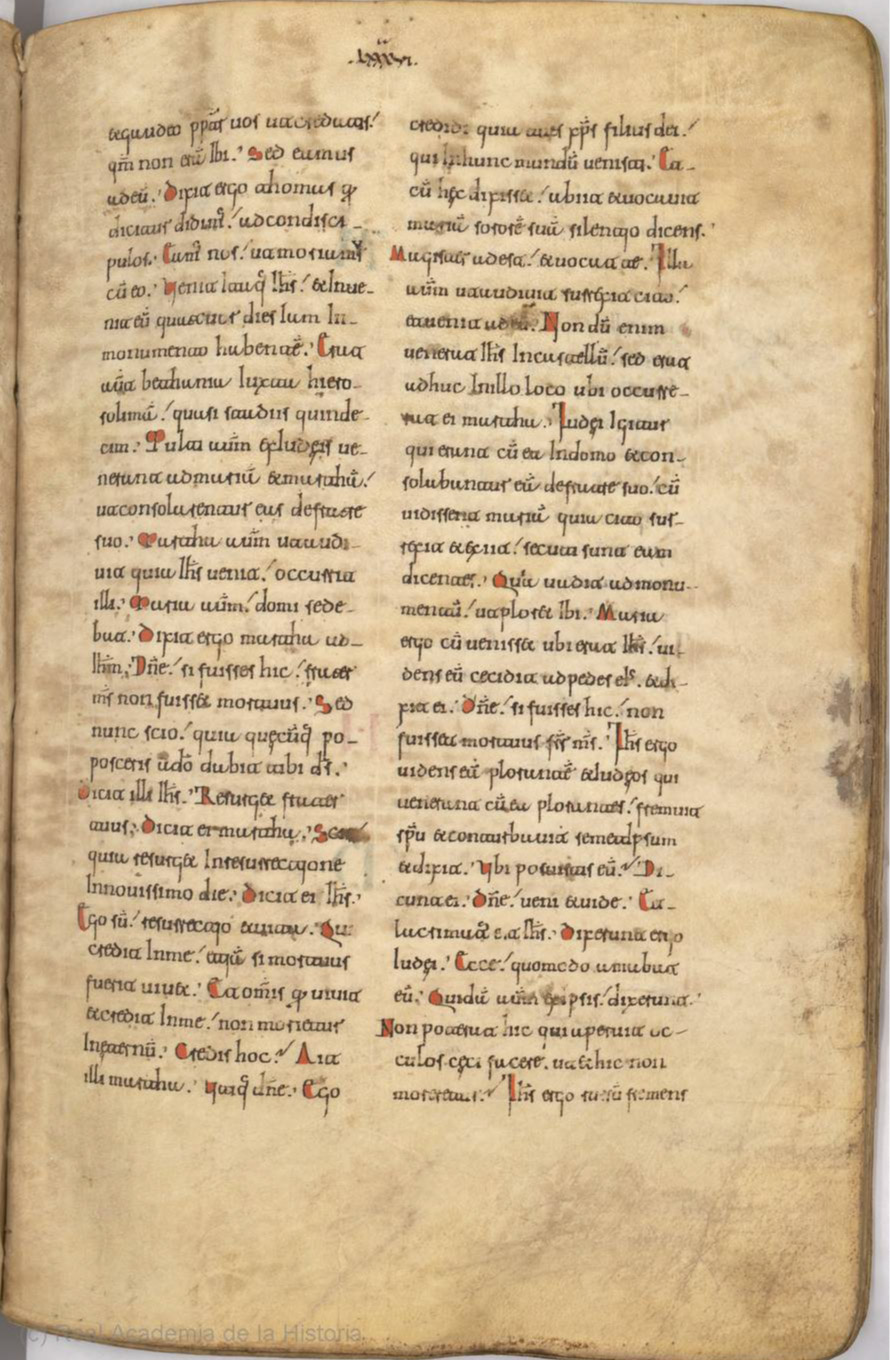 .lxxxvi.
et gaudeo pptēr uos ut credatis.
qnm̄ non erā Ibi. Sed eamus
ad eū. Dixit ergo thomas q
dicitur didim̄. ad condisci-
pulos. Eam̄ nos. ut moriamur
cū eo. Uenit Itaq̄ Ihs̄. et Inue-
nit eū quattuor dies Iam In-
monumento habentē. Erat
aūm bethania Iuxta hiero-
solimā. quasi stadiis quinde-
cim. Multi aūm ex Iudeis ue-
nerunt ad mariā et marthā.
ut consolarentur eas de fratre
suo. Martha aūm ut audi-
uit quia Ihs̄ uenit. occurrit
illi. Maria aūm. domi sede-
bat. Dixit ergo martha ad-
Ihm̄. Dn̄e. si fuisses hic. frater
ms̄ non fuisset mortuus. Sed
nunc scio. quia quęcūq̄ po-
posceris ado dabit tibi ds̄.
Dicit illi Ihs̄. Resurget frater
tuus. Dicit ei martha. Scio
quia resurget In resurrectione
In nouissimo die. Dicit ei Ihs̄.
Ego sū. resurrectio et uita. Qui
credit In me. etiā si mortuus
fuerit uiuet. Et omīs q uiuit
et credit In me. non morietur
In eternū. Credis hoc. Ait
illi martha. utiq̄ dn̄e. Ego
credidi quia tu es xp̄s filius dei.
qui In hunc mundū uenisti. Et-
cū hęc dixisset. abiit et uocauit
mariā sororē suā silentio dicens.
Magister adest. et uocat te. Illa
aūm ut audiuit surrexit cito.
et uenit ad eū. Non dū enim
venerat Ihs̄ In castellū. sed erat
adhuc In illo loco ubi occurre-
rat ei martha. Iudęi Igitur
qui erant cū ea In domo et con-
solabantur eā de fratre suo. cū
uidissent mariā quia cito sur-
rexit et exiit. secuti sunt eam
dicentes. Quia uadit ad monu-
mentū. ut ploret Ibi. Maria
ergo cū uenisset ubi erat Ihs̄. ui-
dens eū cecidit ad pedes eis. et di-
xit ei. Dn̄e. si fuisses hic. non
fuisset mortuus frs̄ ms̄. Ihs̄ ergo
uidens eā plorantē et Iudęos qui
uenerant cū ea plorantes. fremuit
spū et conturbauit semetIpsum
et dixit. Ubi posuistis eū. Di-
cunt ei. Dn̄e. ueni et uide. Et-
lacrimatus est Ihs̄. Dixerunt ergo
Iudęi. Ecce. quomodo amabat
eū. Quidā aūm ex ipsis. dixerunt.
Non poterat hic qui aperuit oc-
culos cęci facere. ut et hic non
moreretur. Ihs̄ ergo rursū fremens
(c) Real Academia de la Historia